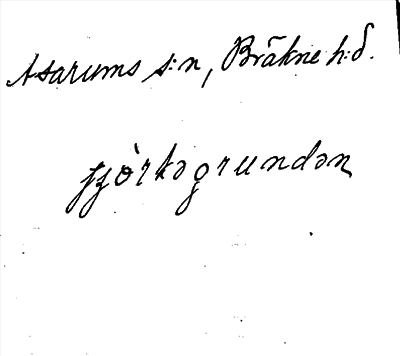 Asarums s:n, Bräkne h:d.
fjòrkəgrundən